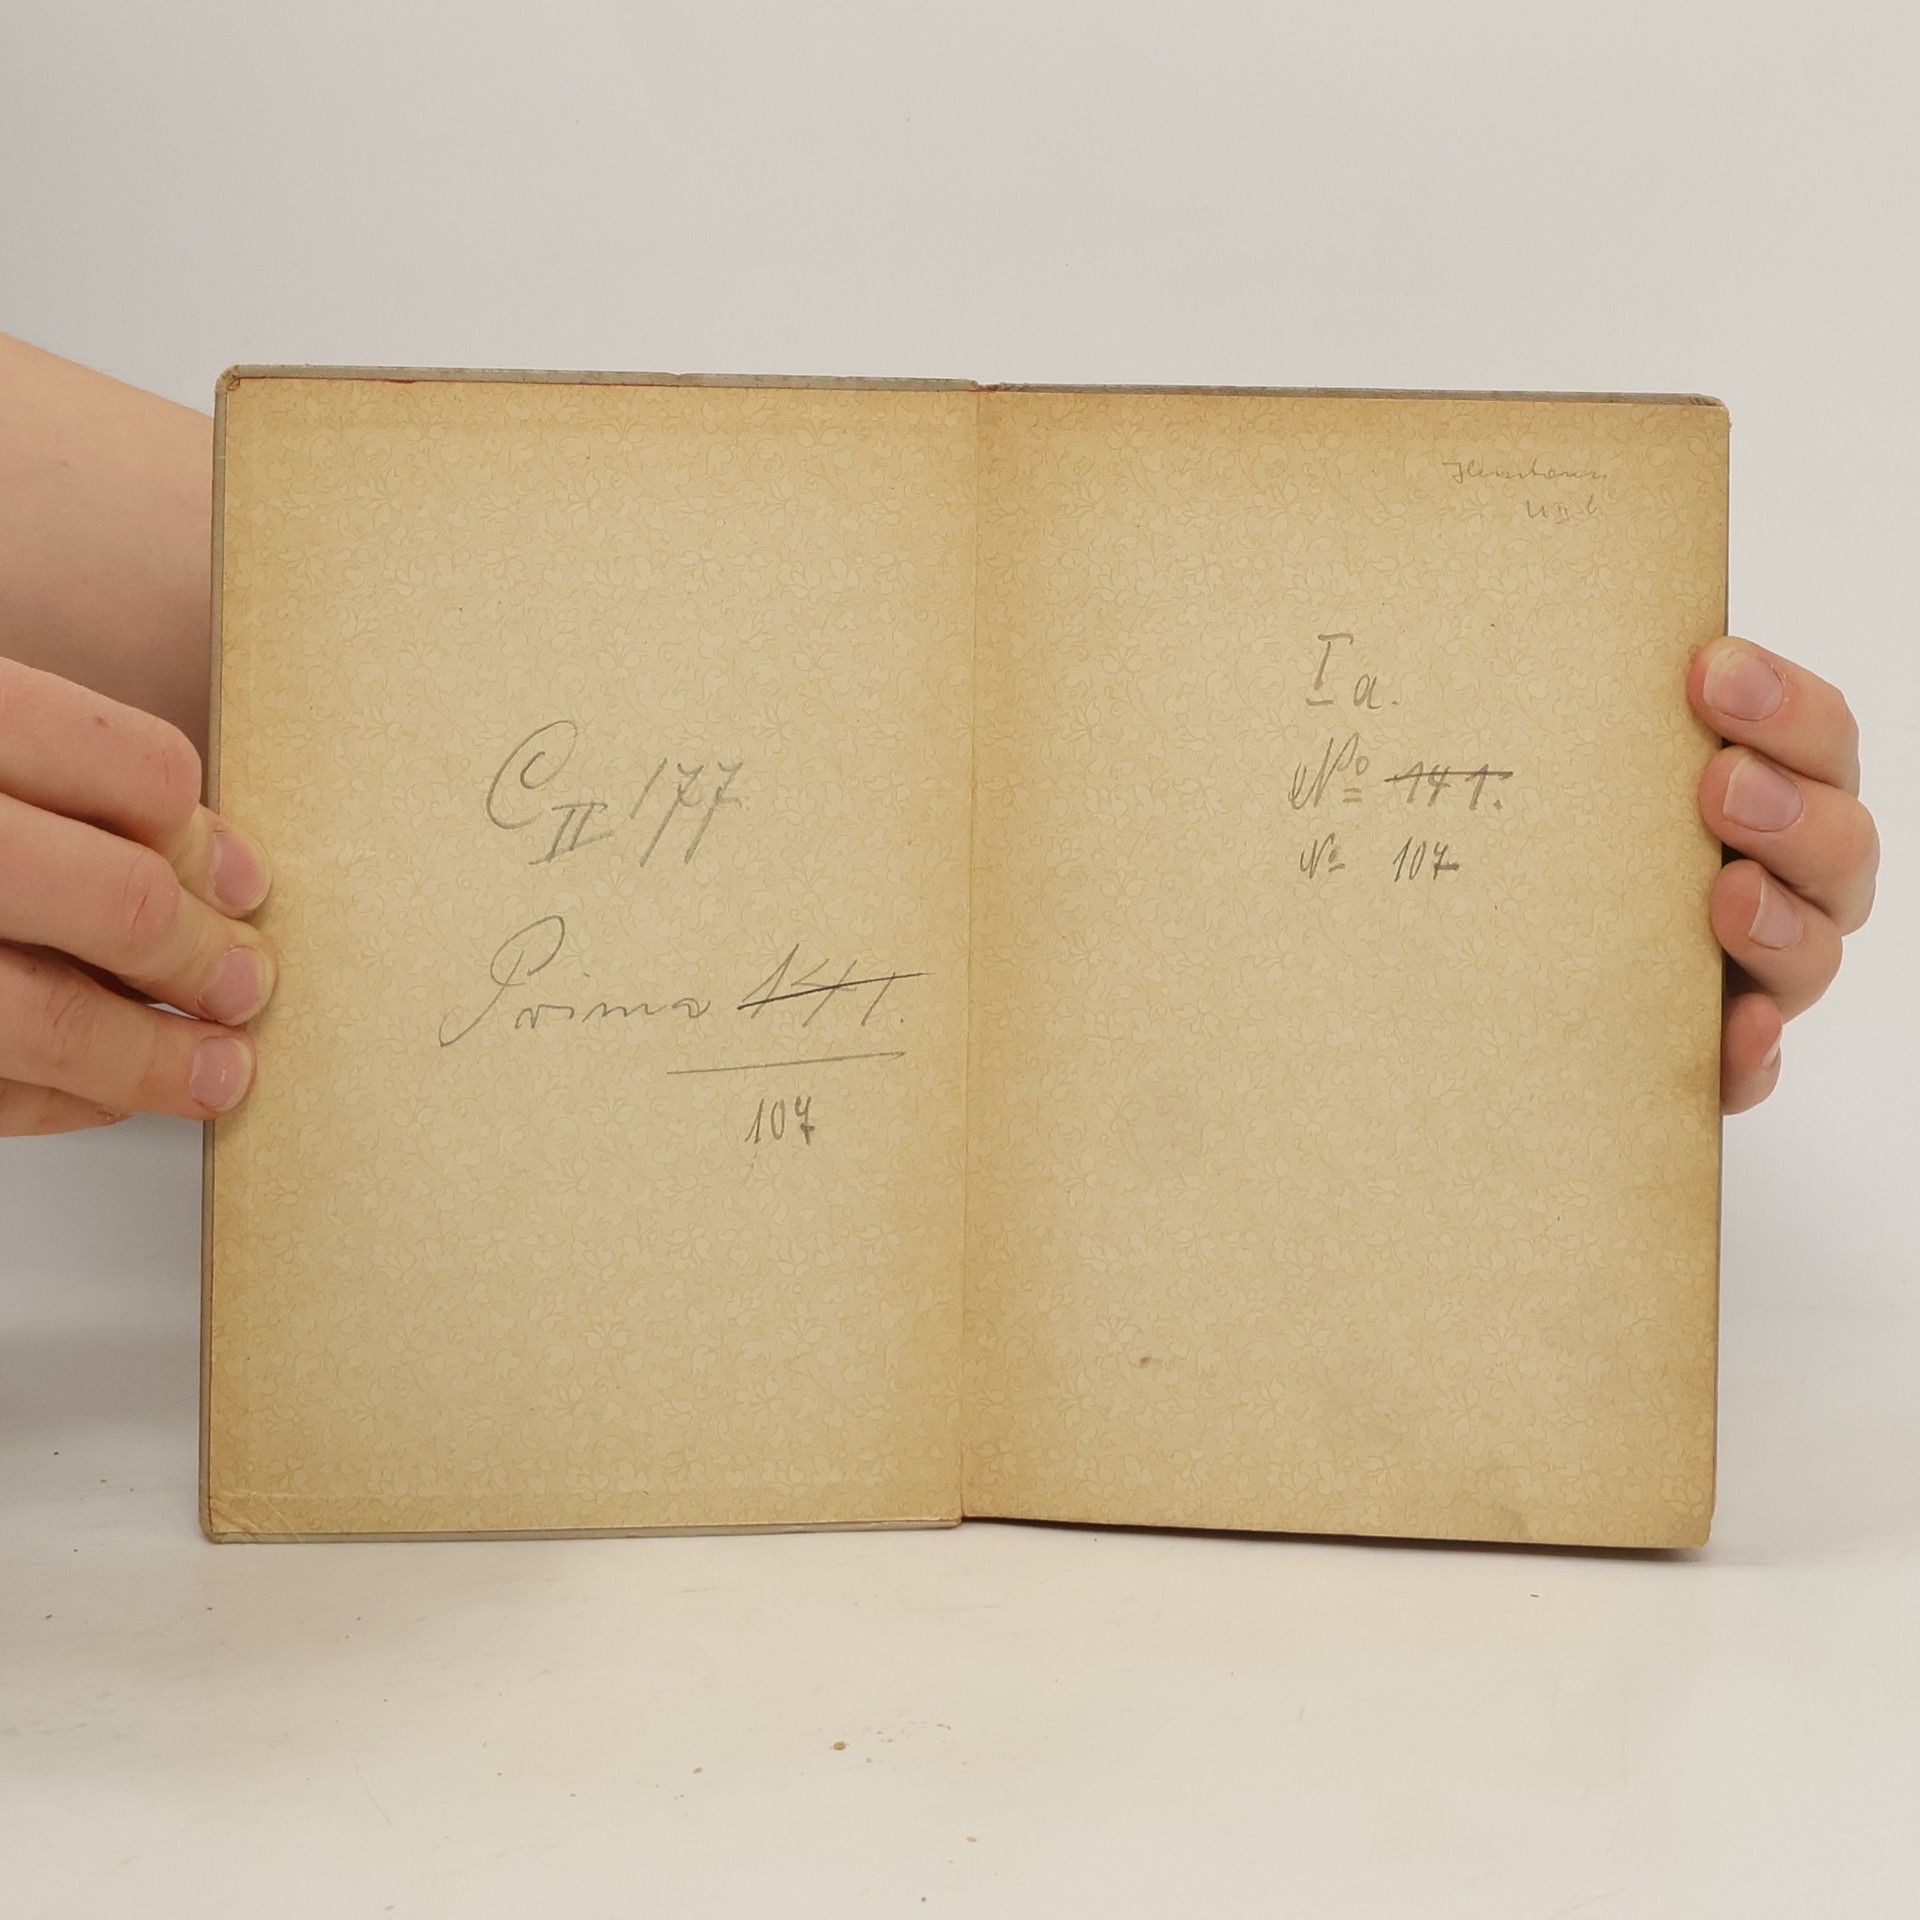 C II 177
Prima 141.
107
U II b
I a.
No 141.
No 107